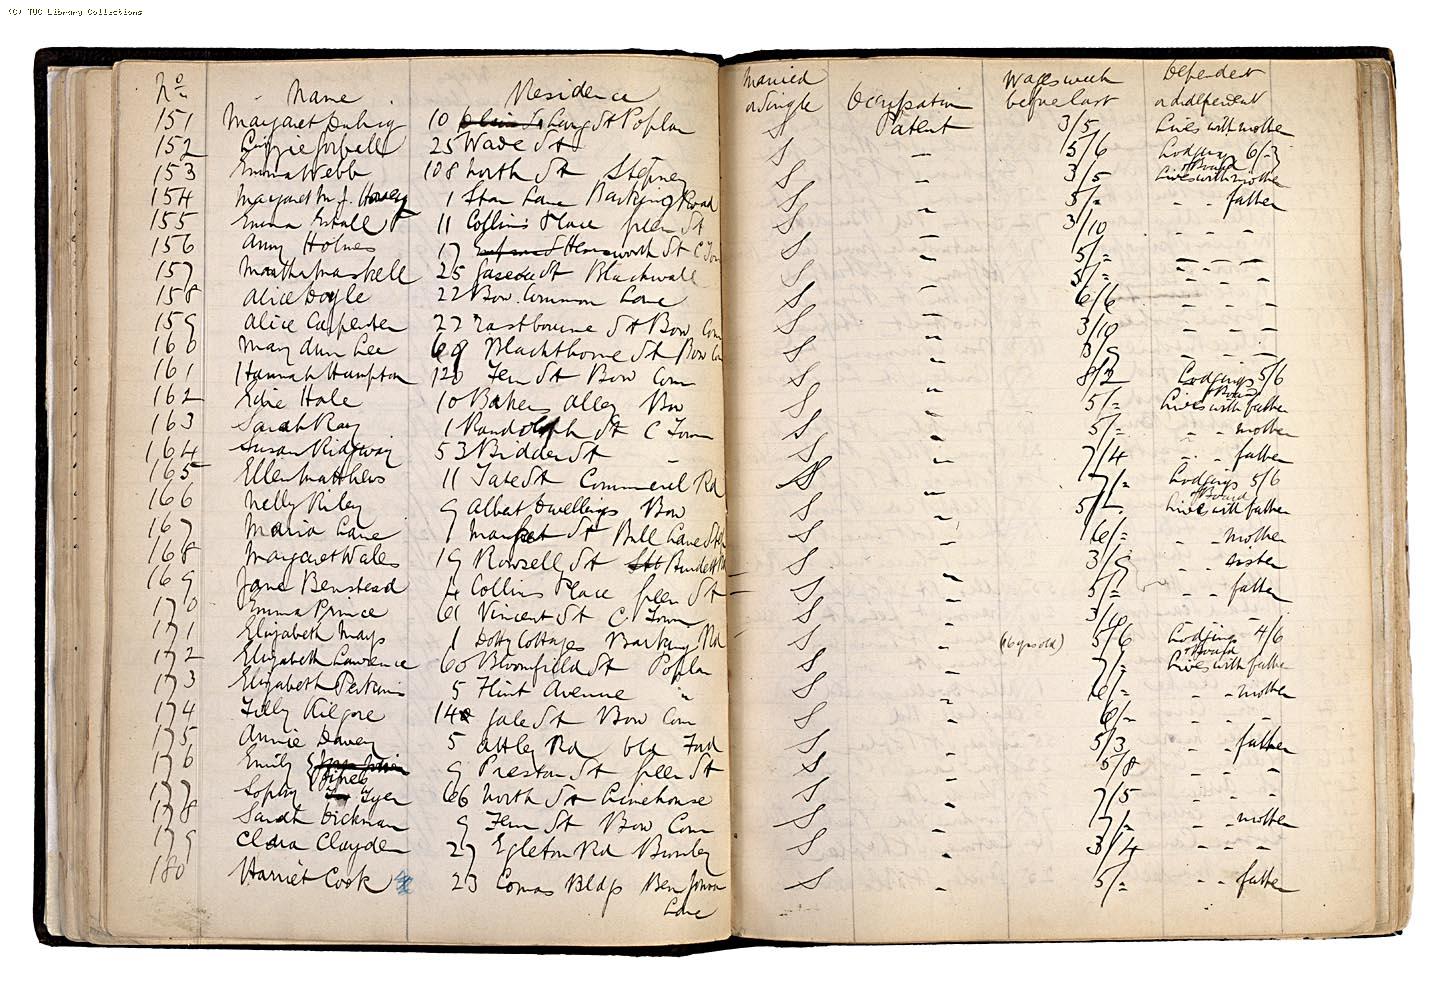 (C) TUC Library Collections
No Name Residence Married or Single Occupation Wages week before last Dependent or Independent
151 Margaret 10 Lang St Poplar S Patent 3/5 Lives with mother
152 Lizzie 25 Wade St S - 5/6 Lodging 6/-
153 Emma Webb 108 North St Stepney S - 3/5 + Board Lives with mother
154 Margaret M. J. 1 Star Lane Barking Road S - 5/= - - father
155 Emma 11 Collins Place Green St S - 3/10 - - -
156 Amy Holmes 17 Hemsworth St C Town S - 5/= - - -
157 Martha Maskell 25 Gascou St Blackwall S - 5/= - - -
158 Alice Doyle 22 Bow Common Lane S - 6/6 - - -
159 Alice Carpenter 22 Eastbourne St Bow Com S - 3/10 - - -
160 Mary Ann Lee 69 Blackthorne St Bow Com S - 3/9 - - -
161 Hannah Hampton 120 Fern St Bow Com S - 8/2 Lodgings 5/6
162 Edie Hale 10 Bakers Alley Bow S - 5/= + Board Lives with father
163 Sarah Ray 1 Randolph St C Town S - 5/= - - mother
164 Susan Ridgway 53 Bidder St - S - 7/4 - - father
165 Ellen Matthews 11 Tate St Commercl Rd S - 7/= Lodgings 5/6
166 Nelly Riley 9 Albert Dwellings Bow S - 5/- + Board Lives with father
167 Maria Lane 9 Market St Bull Lane S - 6/= - - mother
168 Margaret Wales 19 Rowsell St Burdett Rd S - 3/9 - - sister
169 Jane Benstead 4 Collins Place Green St S - 5/= - - father
170 Emma Prince 61 Vincent St C Town S - 3/10 - - -
171 Elizabeth Mays 1 Dotty Cottages Barking Rd S - (16 yrs old) 5/6 Lodging 4/6
172 Elizabeth Lawrence 60 Bloomfield St Poplar S - 7/= + Board Lives with father
173 Elizabeth Perkins 5 Flint Avenue " S - 6/= - - mother
174 Tilly Kilgore 148 Gale St Bow Com S - 6/= - - -
175 Annie Davey 5 Attley Rd Old Ford S - 5/3 - - father
176 Emily Hines 9 Preston St Green St S - 5/8 - - -
177 Sophy Tyer 66 North St Limehouse S - 7/5 - - -
178 Sarah Dickman 9 Fern St Bow Com S - 7/= - - mother
179 Clara Clayden 27 Egleton Rd Bromley S - 3/4 - - -
180 Harriet Cook 23 Comas Bldgs Ben Jonson S - 5/= - - father
Lane